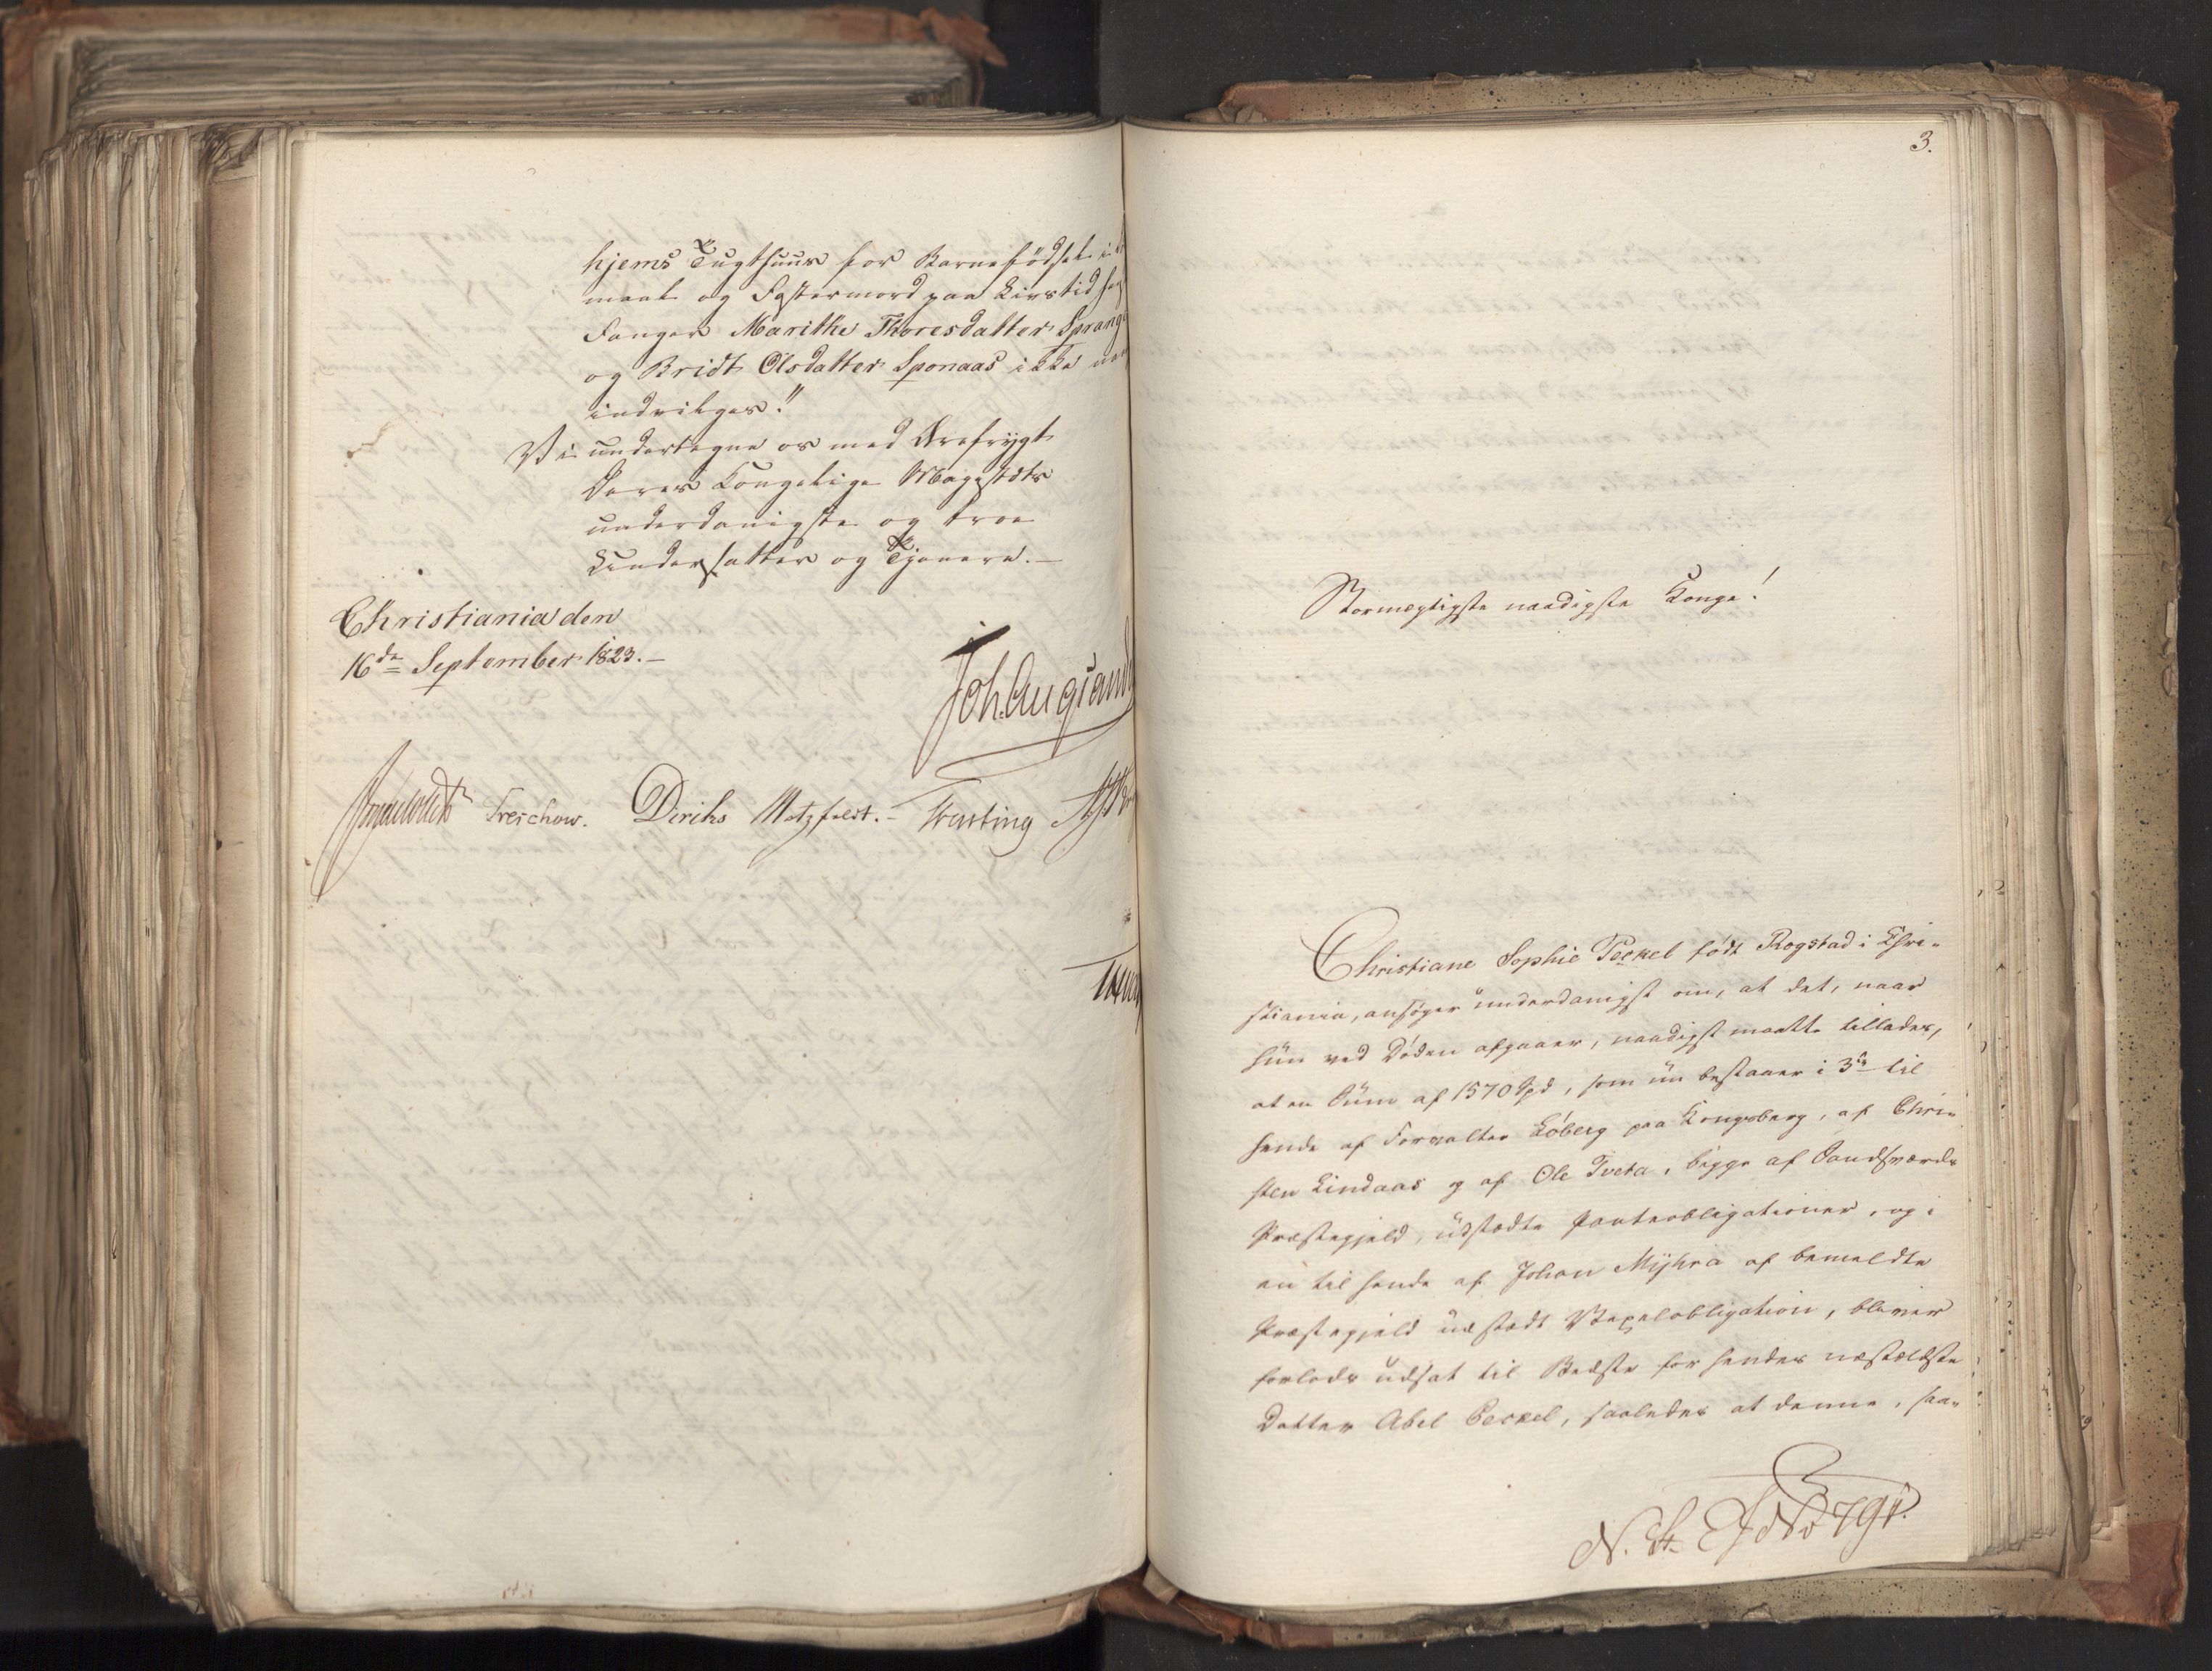 hjems Tugthuus for Barnefødsel i
maal og Fostermord paa Livstid
Fanger Marithe Thoresdatter Sprang
og Bridt Olsdatter Sponaas ikke
indvilges."
Vi undertegne os med Ærefrygt
Deres Kongelige Majestæts
underdanigste og troe
Undersatter og Tjenere.—
Christiania den
16de September 1823.—
Joh. Aug Sand
Treschow. Diriks Motzfeldt.- Krefting
3.
Stormægtigste naadigste Konge!
Christiane Sophie Peckel født Rogstad i Chri-
stiania, ansøger underdanigst om, at det, naar
hun ved Døden afgaaer, naadigst maatte tillades,
at en Sum af 1570 Spd, som nu bestaaer i 3de til
hende af Forvalter Løberg paa Kongsberg, af Chri-
sten Lindaas og af Ole Tveta, begge af Sandsværds
Præstegjeld, udstædte Panteobligationer, og i
en til hende af Johan Myhra af bemeldte
Præstegjeld udstædt Vexelobligation, bliver
forlods udsat til Bedste for hendes næstældste
Datter Abel Peckel, saaledes at denne, saa-